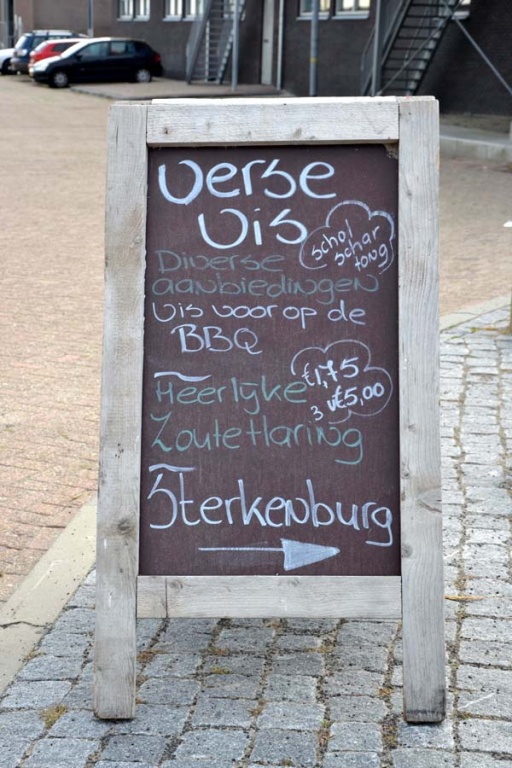 Verse
Vis
schol
schar
tong
Diverse
aanbiedingen
Vis voor op de
BBQ
€1,75
3 v€5,00
Heerlijke
Zoute Haring
Sterkenburg